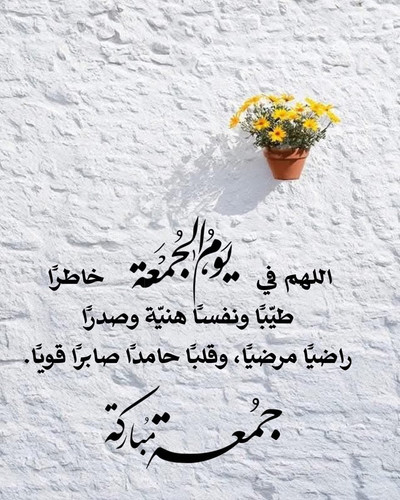 اللهم في يَومُ الجُمُعَة خاطرًا
طيّبًا ونفسًا هنيّة وصدرًا
راضيًا مرضيًا، وقلبًا حامدًا صابرًا قويًا.
جُمُعة مُباركة